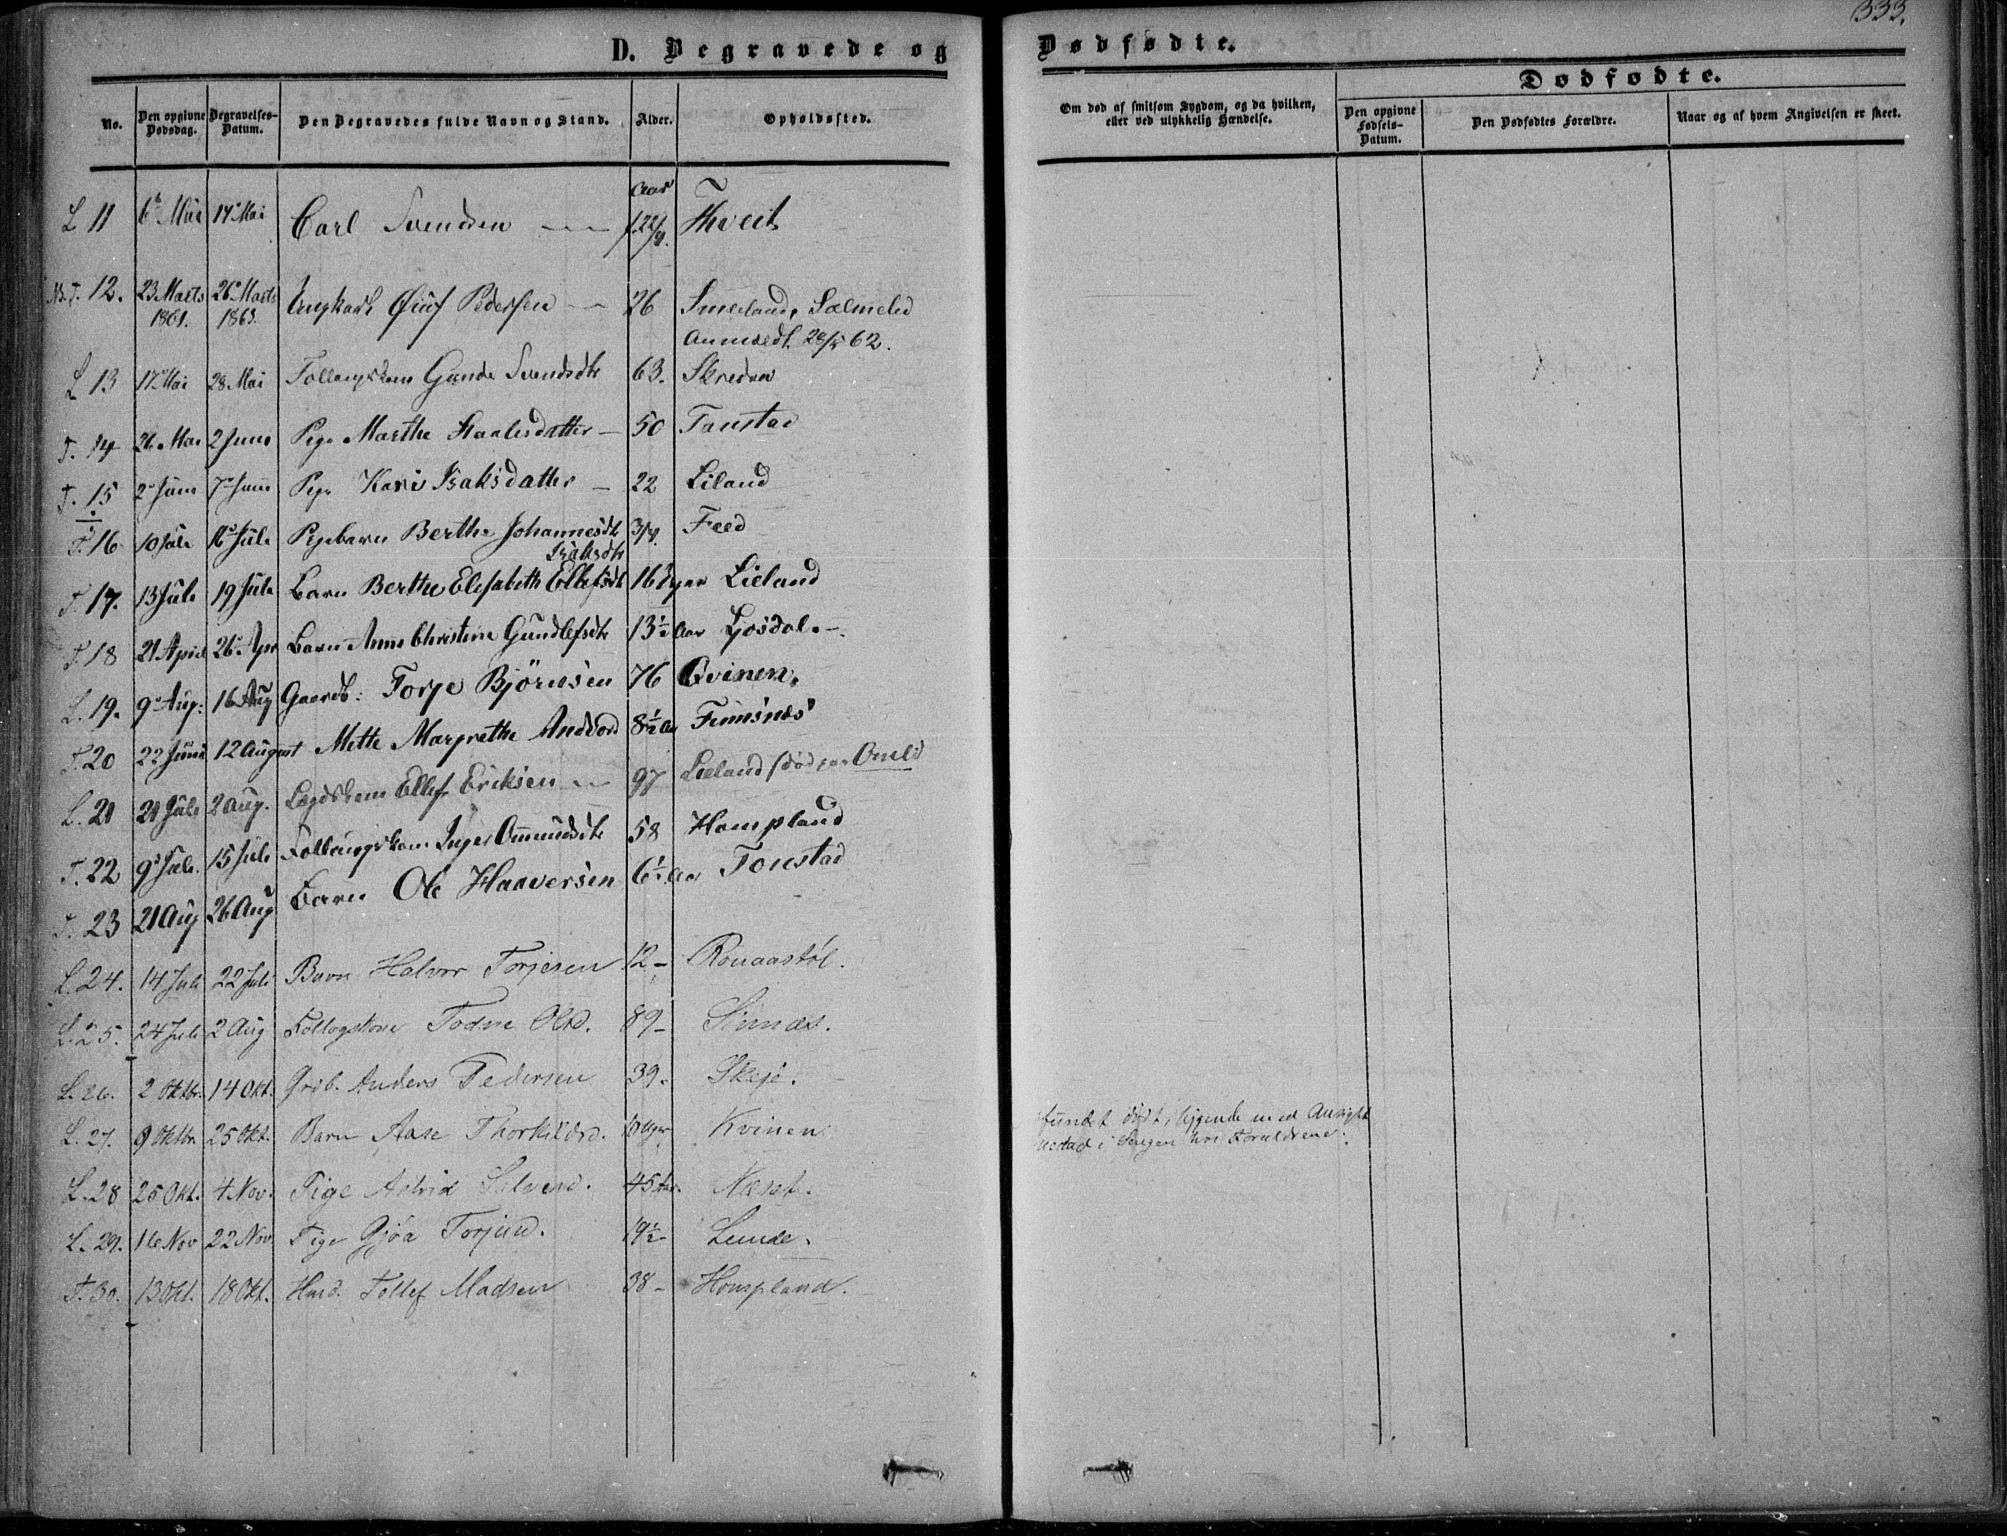 333.
D. Begravede og
Dødfødte.
No.
Den opgivne Dødsdag.
Begravelses-Datum.
Den Begravedes fulde Navn og Stand.
Alder.
Opholdssted.
Om død af smitsom Sygdom, og da hvilken, eller ved ulykkelig Hændelse.
Dødfødte.
Den opgivne Fødsels-Datum.
Den Dødfødtes Forældre.
Naar og af hvem Angivelsen er skeet.
Aar
L 11 6te Mai 17 Mai Carl Svendsen Thveit
12. 23 Marts 1861. 26 Marts Ungkarl Pedersen 26 Smeeland,
Anmeldt 62.
L 13 17 Mai 28 Mai Gunde Svendsdtr 63. Skreden
T. 14 26 Mai 2 Juni Pige Marthe 50 Tonstad
T. 15 2 Juni 7 Juni Pige Kari Isaksdatter 22 Liland
T. 16 10 Juli 16 Juli Pigebarn Berthe Johannesdt 3/4. Feed
Isaksdtr
T. 17. 13 Juli 19 Juli Barn Berthe Elisabeth Ellefsdt Lieland
T. 18 21 April 26 Apr Barn Anne Christine Gundlefsdt 13½ Aar Josdal.
L. 19. 9 Aug: 16 Aug Gaardb: Torje Björnsen 76 Qvinen.
T. 20 22 Juni 12 August Mette Margrethe 8½ Aar Finnsnæs
L. 21 21 Juli 2 Aug. Lægdslem Ellef Eriksen 97 Lieland (død paa Omli
T. 22 9 Juli. 15 Juli Inger Omundsdt 58 Hompland
T. 23 21 Aug 26 Aug Barn Ole Haaversen 6½ Aar Tonstad
L. 24. 14 Juli 22 Juli Barn Halvor Torjesen 12 - Ronaastøl.
L. 25. 24 Juli 2 Aug Todne Olsd. 89 - Sinnæs.
L. 26. 2 Oktbr. 14 Okt. Grdb. Anders Pedersen 39. Skeje.
L. 27. 9 Oktbr. 25 Okt. Barn Aase Thorkildsd. Uger Kvinen
fundet dødt, liggende med Ansigtet
nedad i Sengen hos Forældrene.
L. 28 25 Okt. 4 Nov. Pige Astrid 45 Aar. Næset.
L. 29. 16 Nov 22 Nov. Pige Gjøa Torjusd. 19½ - Lunde.
T. 30. 13 Okt. 18 Okt. Husm. Tollef Madsen 38 - Hompland.